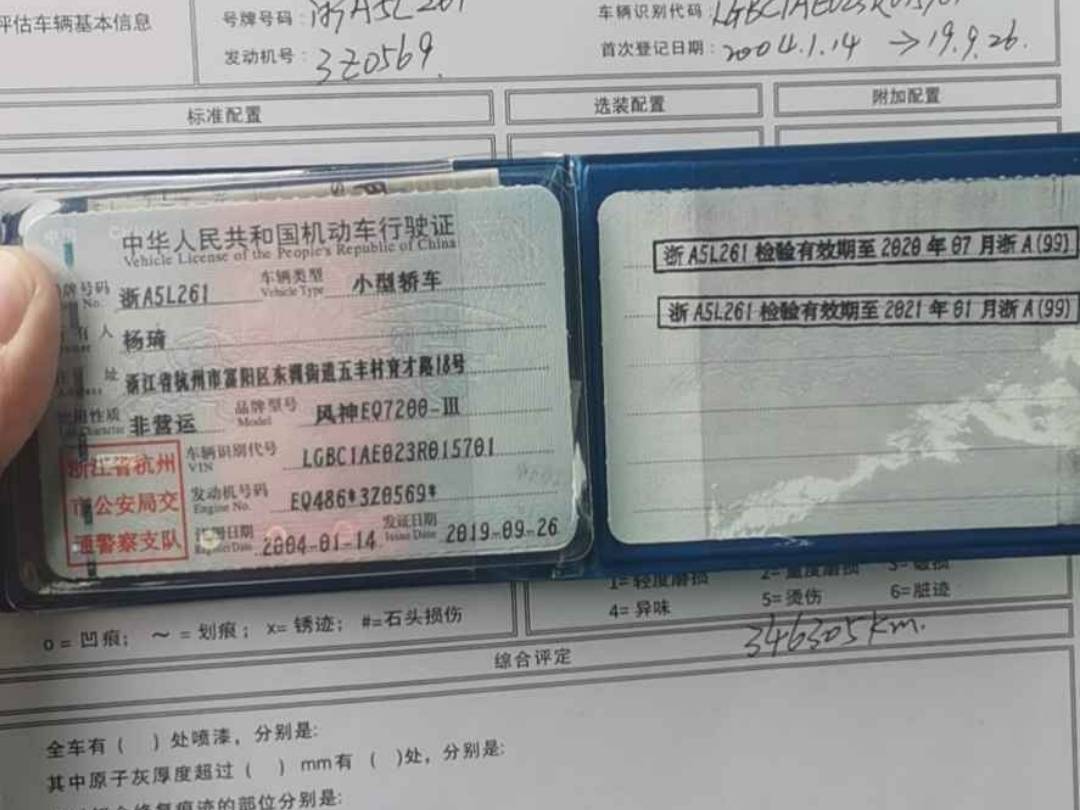 评估车辆基本信息
号牌号码：浙A5L261
车辆识别代码：LGBC1AE023R015701
发动机号：3Z0569.
首次登记日期：2004.1.14 → 19.9.26.
标准配置
选装配置
附加配置
中华人民共和国机动车行驶证
Vehicle License of the People's Republic of China
牌号码 No. 浙A5L261 车辆类型 Vehicle Type 小型轿车
有人 杨琦
址 浙江省杭州市富阳区东洲街道五丰村育才路18号
用性质 非营运 品牌型号 Model 风神EQ7200-Ⅲ
浙江省杭州
市公安局交
通警察支队
车辆识别代号 VIN LGBC1AE023R015701
发动机号码 Engine No. EQ486*3Z0569*
注册日期 2004-01-14 发证日期 Issue Date 2019-09-26
浙A5L261 检验有效期至 2020 年 07 月浙A(99)
浙A5L261 检验有效期至 2021 年 01 月浙A(99)
1=轻度磨损 2=重度磨损 3=破损
4=异味 5=烫伤 6=脏迹
o = 凹痕； ～ = 划痕； x= 锈迹； #=石头损伤
346305km.
综合评定
全车有（ ）处喷漆，分别是：
其中原子灰厚度超过（ ）mm有（ )处，分别是：
修复痕迹的部位分别是：